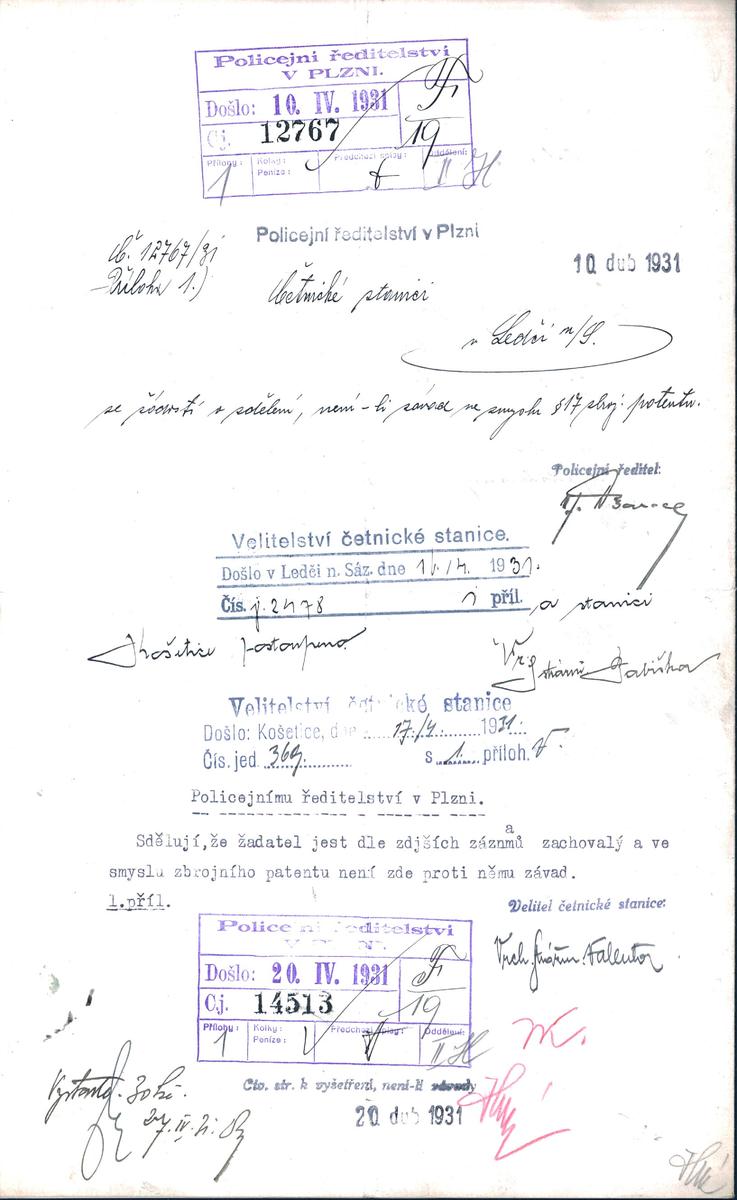 Policejní ředitelství
V PLZNI.
Došlo: 10. IV. 1931
Cj. 12767
19
Přílohy: Kolky: Předchozí spisy: Oddělení:
Peníze:
1 II H
Policejní ředitelství v Plzni
č. 12767/31
10 dub 1931
Příloha 1.)
Četnické stanici
v Ledči n/S.
se žádostí o sdělení, není-li závad ve smyslu §17 zbroj. patentu.
Policejní ředitel:
Velitelství četnické stanice.
Došlo v Ledči n. Sáz. dne 1931.
Čís. j. 2478 1 příl. a stanici
Košetice postoupeno
Velitelství četnické stanice
Došlo: Košetice, dne 17/4. 1931.
Čís. jed. 369 s 1 příloh.
Policejnímu ředitelství v Plzni.
Sděluji,že žadatel jest dle zdjších záznmů a zachovalý a ve
smyslu zbrojního patentu není zde proti němu závad.
1.příl.
Velitel četnické stanice:
Policejní ředitelství
V PLZNI.
Došlo: 20. IV. 1931
Cj. 14513
19
Přílohy: Kolky: Předchozí spisy: Oddělení:
Peníze:
1 II H
Civ. str. k vyšetření, není-li závady
20 dub 1931